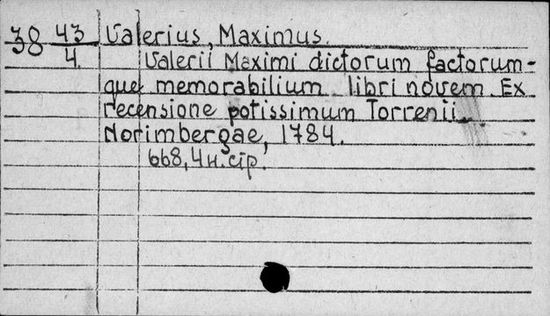 38 43/4 Valerius, Maximus.
Valerii Maximi dictorum factorum-
que memorabilium libri novem. Ex
recensione potissimum Torrenii.
Norimbergae, 1784.
668, 4н. стр.